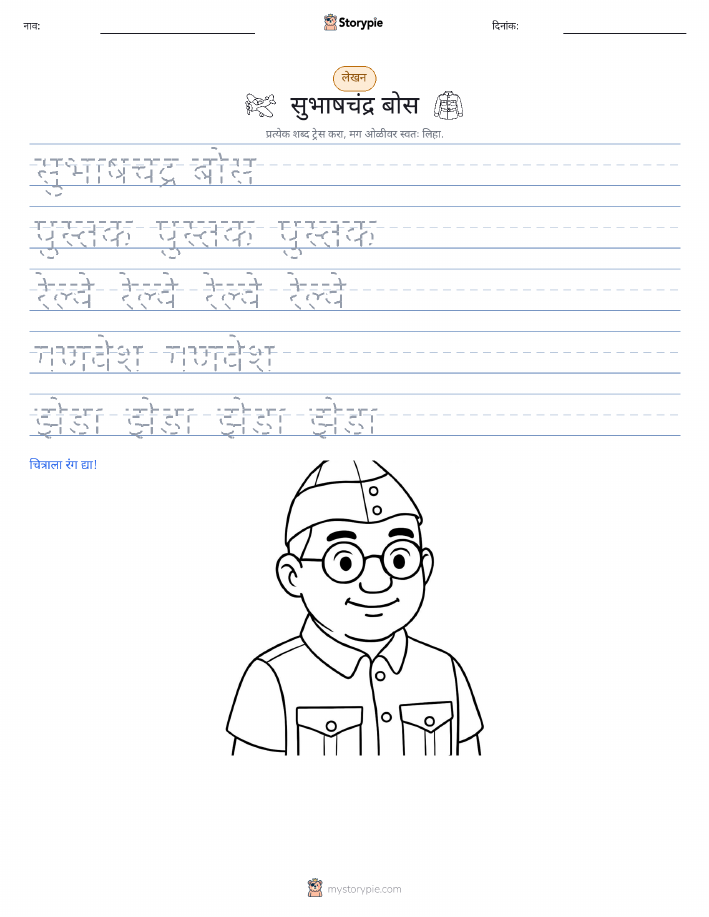 नाव:
Storypie
दिनांक:
लेखन
सुभाषचंद्र बोस
प्रत्येक शब्द ट्रेस करा, मग ओळीवर स्वतः लिहा.
सुभाषचंद्र बोस
पुस्तक पुस्तक पुस्तक
रेल्वे रेल्वे रेल्वे रेल्वे
गणवेश गणवेश
झेंडा झेंडा झेंडा झेंडा
चित्राला रंग द्या!
mystorypie.com